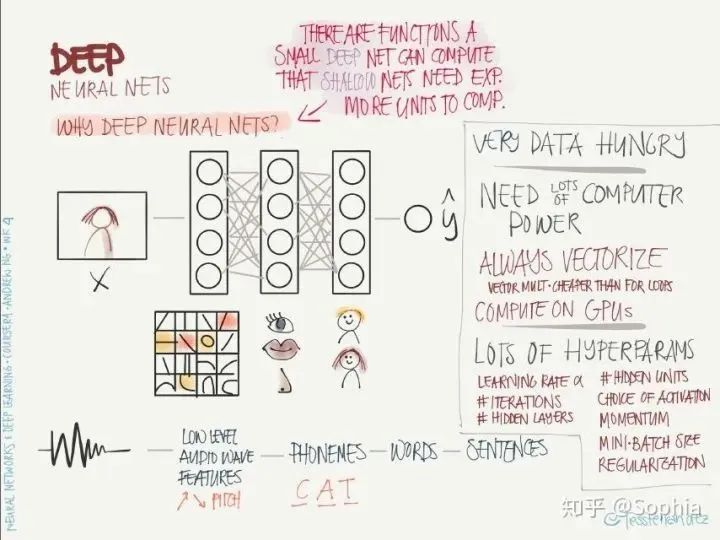 DEEP
NEURAL NETS
WHY DEEP NEURAL NETS?
THERE ARE FUNCTIONS A
SMALL DEEP NET CAN COMPUTE
THAT SHALLOW NETS NEED EXP.
MORE UNITS TO COMP.
X
ŷ
LOW LEVEL
AUDIO WAVE
FEATURES
PITCH
PHONEMES
WORDS
SENTENCES
C A T
VERY DATA HUNGRY
NEED LOTS OF COMPUTER
POWER
ALWAYS VECTORIZE
VECTOR MULT. CHEAPER THAN FOR LOOPS
COMPUTE ON GPUs
LOTS OF HYPERPARAMS
LEARNING RATE α
# ITERATIONS
# HIDDEN LAYERS
# HIDDEN UNITS
CHOICE OF ACTIVATION
MOMENTUM
MINI-BATCH SIZE
REGULARIZATION
NEURAL NETWORKS & DEEP LEARNING · COURSERA · ANDREW NG · WK 4
知乎 @Sophia